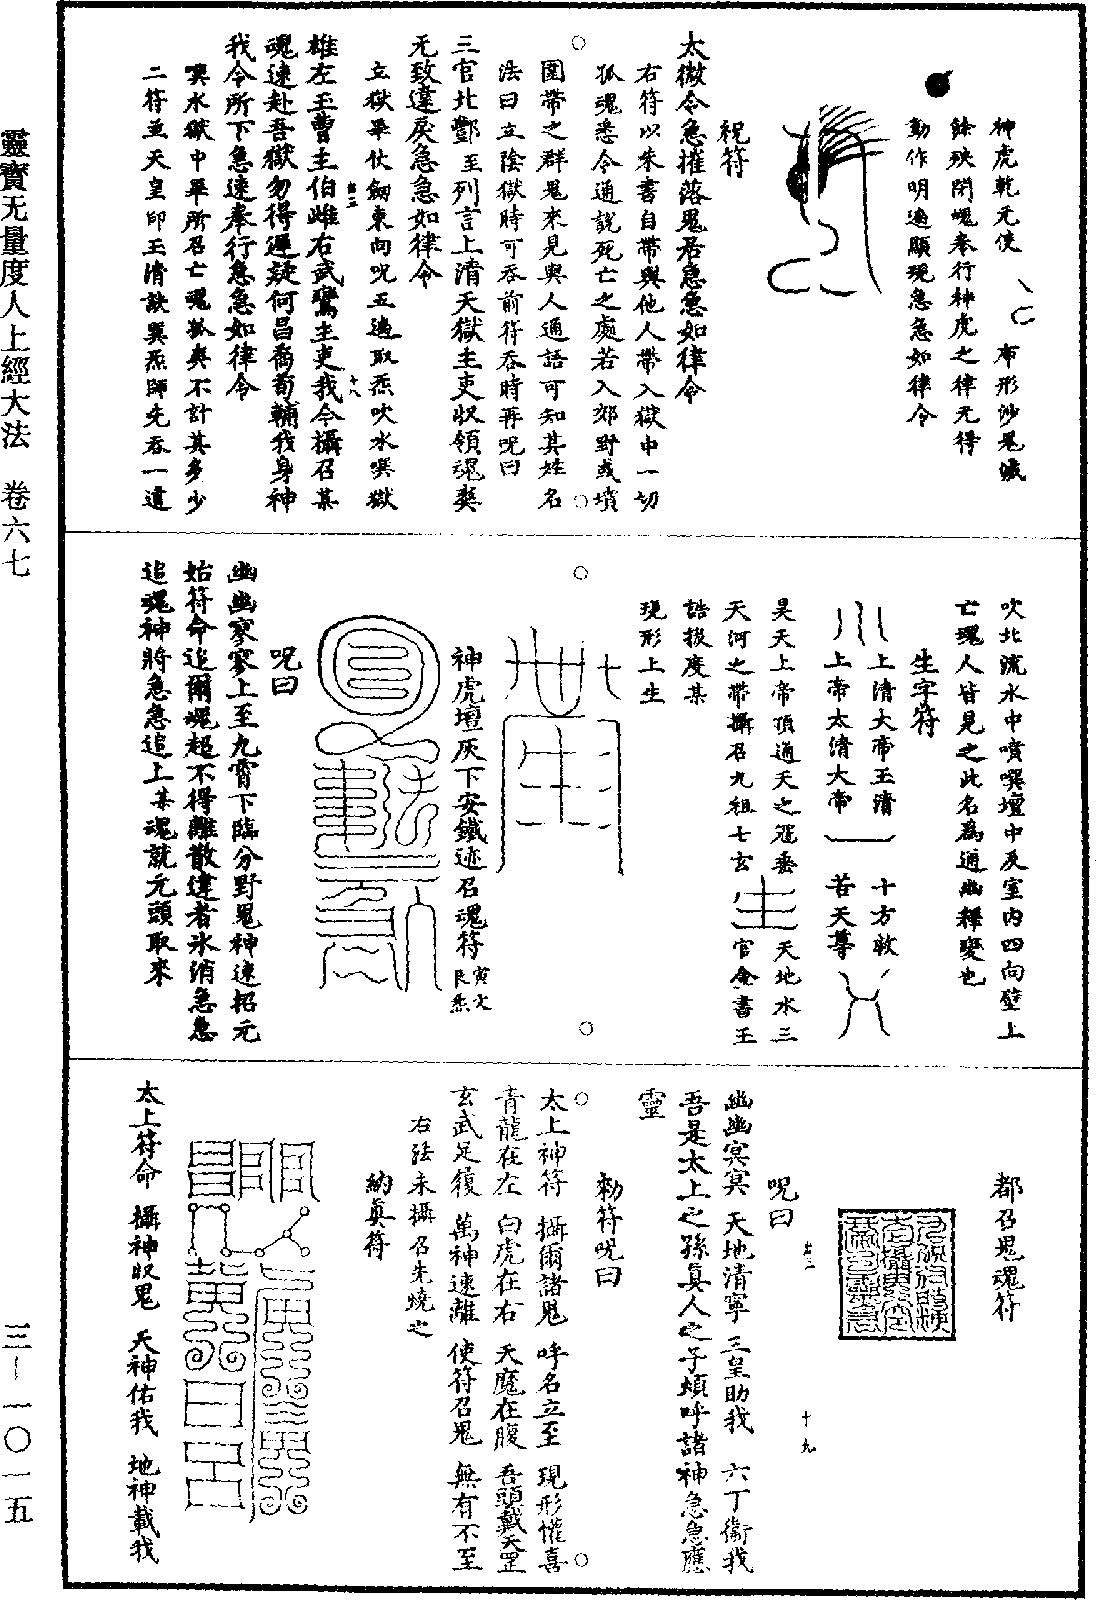 靈寶无量度人上經大法　卷六七
三—一〇一五
神虎乾元使　布形沙鬼滅
餘殃閉魂奉行神虎之律无得
動作明過顯現急急如律令
祝符
太微令急摧落鬼君急急如律令
右符以朱書自帶與他人帶入獄中一切
孤魂悉令通說死亡之處若入郊野或墳
圍帶之群鬼來見與人通語可知其姓名
法曰立陰獄時可吞前符吞時再呪曰
三官北酆至列言上清天獄主吏收領魂爽
无致違戾急急如律令
立獄畢仗劒東向呪五遍取炁吹水噀獄
雄左玉曹主伯雌右武鸞主吏我令攝召某
魂速赴吾獄勿得遲疑何昌喬荀輔我身神
我今所下急速奉行急急如律令
噀水獄中畢所召亡魂孤爽不計其多少
二符並天皇印玉清訣巽炁師先吞一遣
十八
吹北流水中噴噀壇中及室內四向壁上
亡魂人皆見之此名爲通幽釋變也
生字符
上清大帝玉清　十方救
上帝太清大帝　苦天尊
昊天上帝頂通天之冠垂　天地水三
天河之帶攝召九祖七玄　官金書玉
誥拔度某
現形上生
神虎壇灰下安鐵迹召魂符
寅文
艮炁
呪曰
幽幽寥寥上至九霄下臨分野鬼神速招元
始符命追爾魂超不得離散違者氷消急急
追魂神將急急追上某魂就元頭取來
都召鬼魂符
呪曰
幽幽冥冥　天地清寧　三皇助我　六丁衞我
吾是太上之孫真人之子煩呼諸神急急應
靈
十九
勑符呪曰
太上神符　攝爾諸鬼　呼名立至　現形懽喜
青龍在左　白虎在右　天魔在腹　吾頭戴天罡
玄武足履　萬神速離　使符召鬼　無有不至
右法未攝召先燒之
納眞符
太上符命　攝神收鬼　天神佑我　地神載我